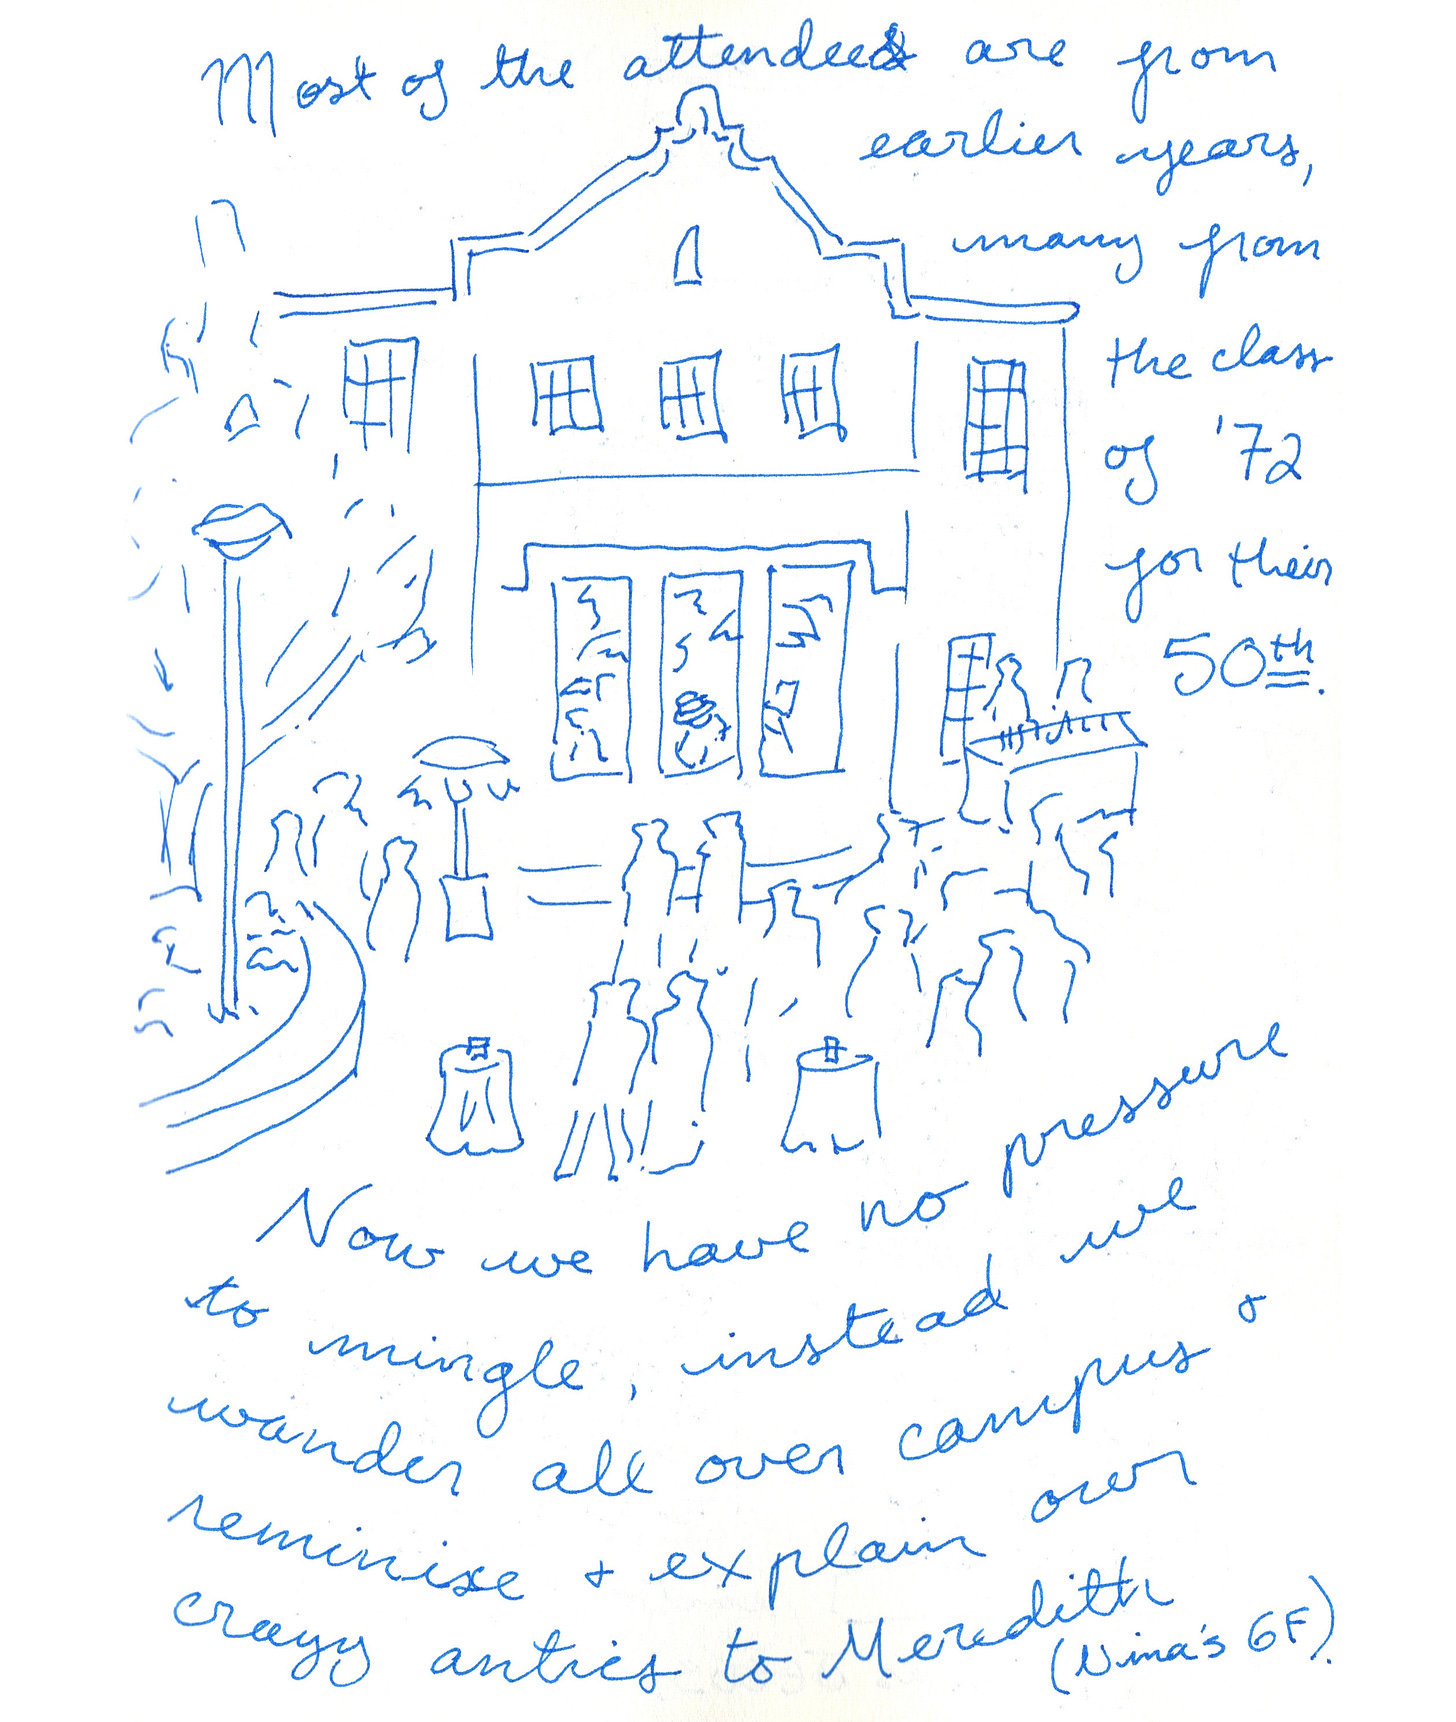 Most of the attendees are from
earlier years,
many from
the class
of '72
for their
50th.
Now we have no pressure
to mingle, instead we
wander all over campus &
reminise & explain our
crazy antics to Meredith
(Nina's GF).